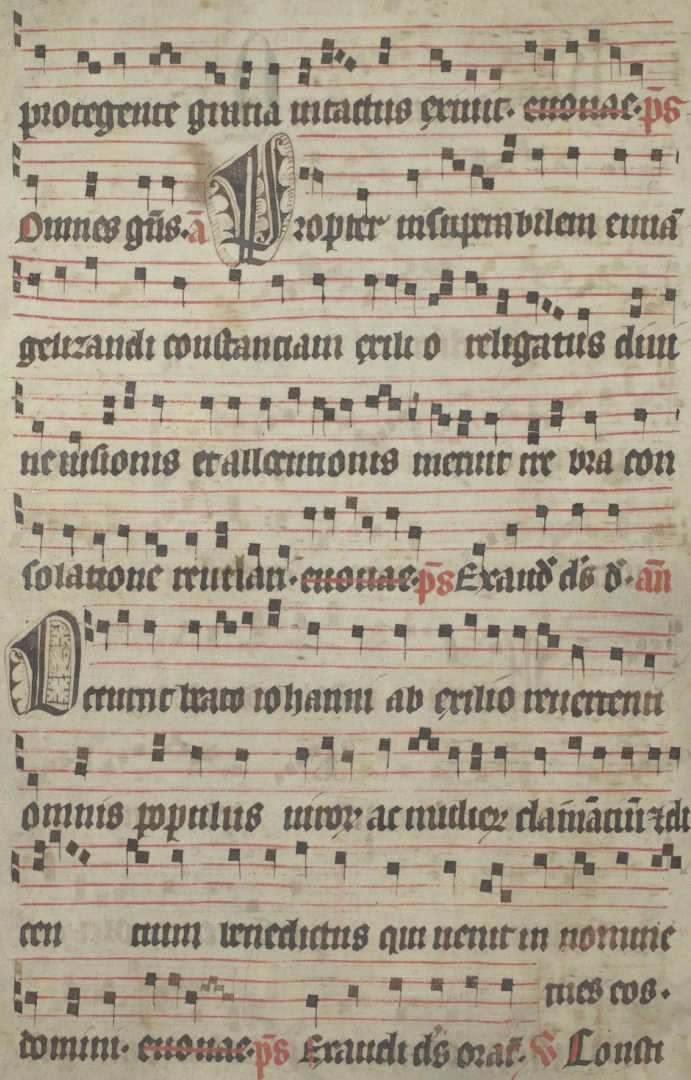 protegente gratia intactus exiuit. euouae. p̄s
Omnes gn̄s. ā Propter insuperabilem euuā
gelizandi constanciam exili o religatus diui
ne uisionis et allocutionis meruit cre bra con
solatione reuelari. euouae. p̄s Exaud̄ dn̄s d̄. an̄
Occurrit beato iohanni ab exilio reuertenti
omnis populus uiroꝝ ac mulieꝝ clamāciū ⁊ di
cen cium benedictus qui uenit in nomine
mes eos.
domini. euouae. p̄s Exaudi dn̄s orat̄. V Consti